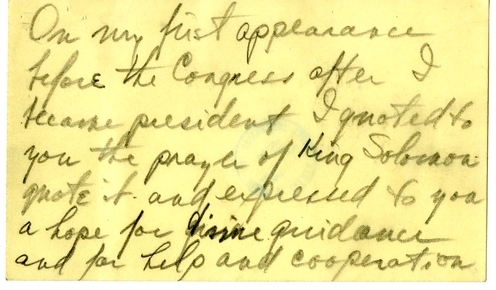 On my first appearance
before the Congress after I
became president I quoted to
you the prayer of King Solomon
quote it and expressed to you
a hope for divine guidance
and for help and cooperation